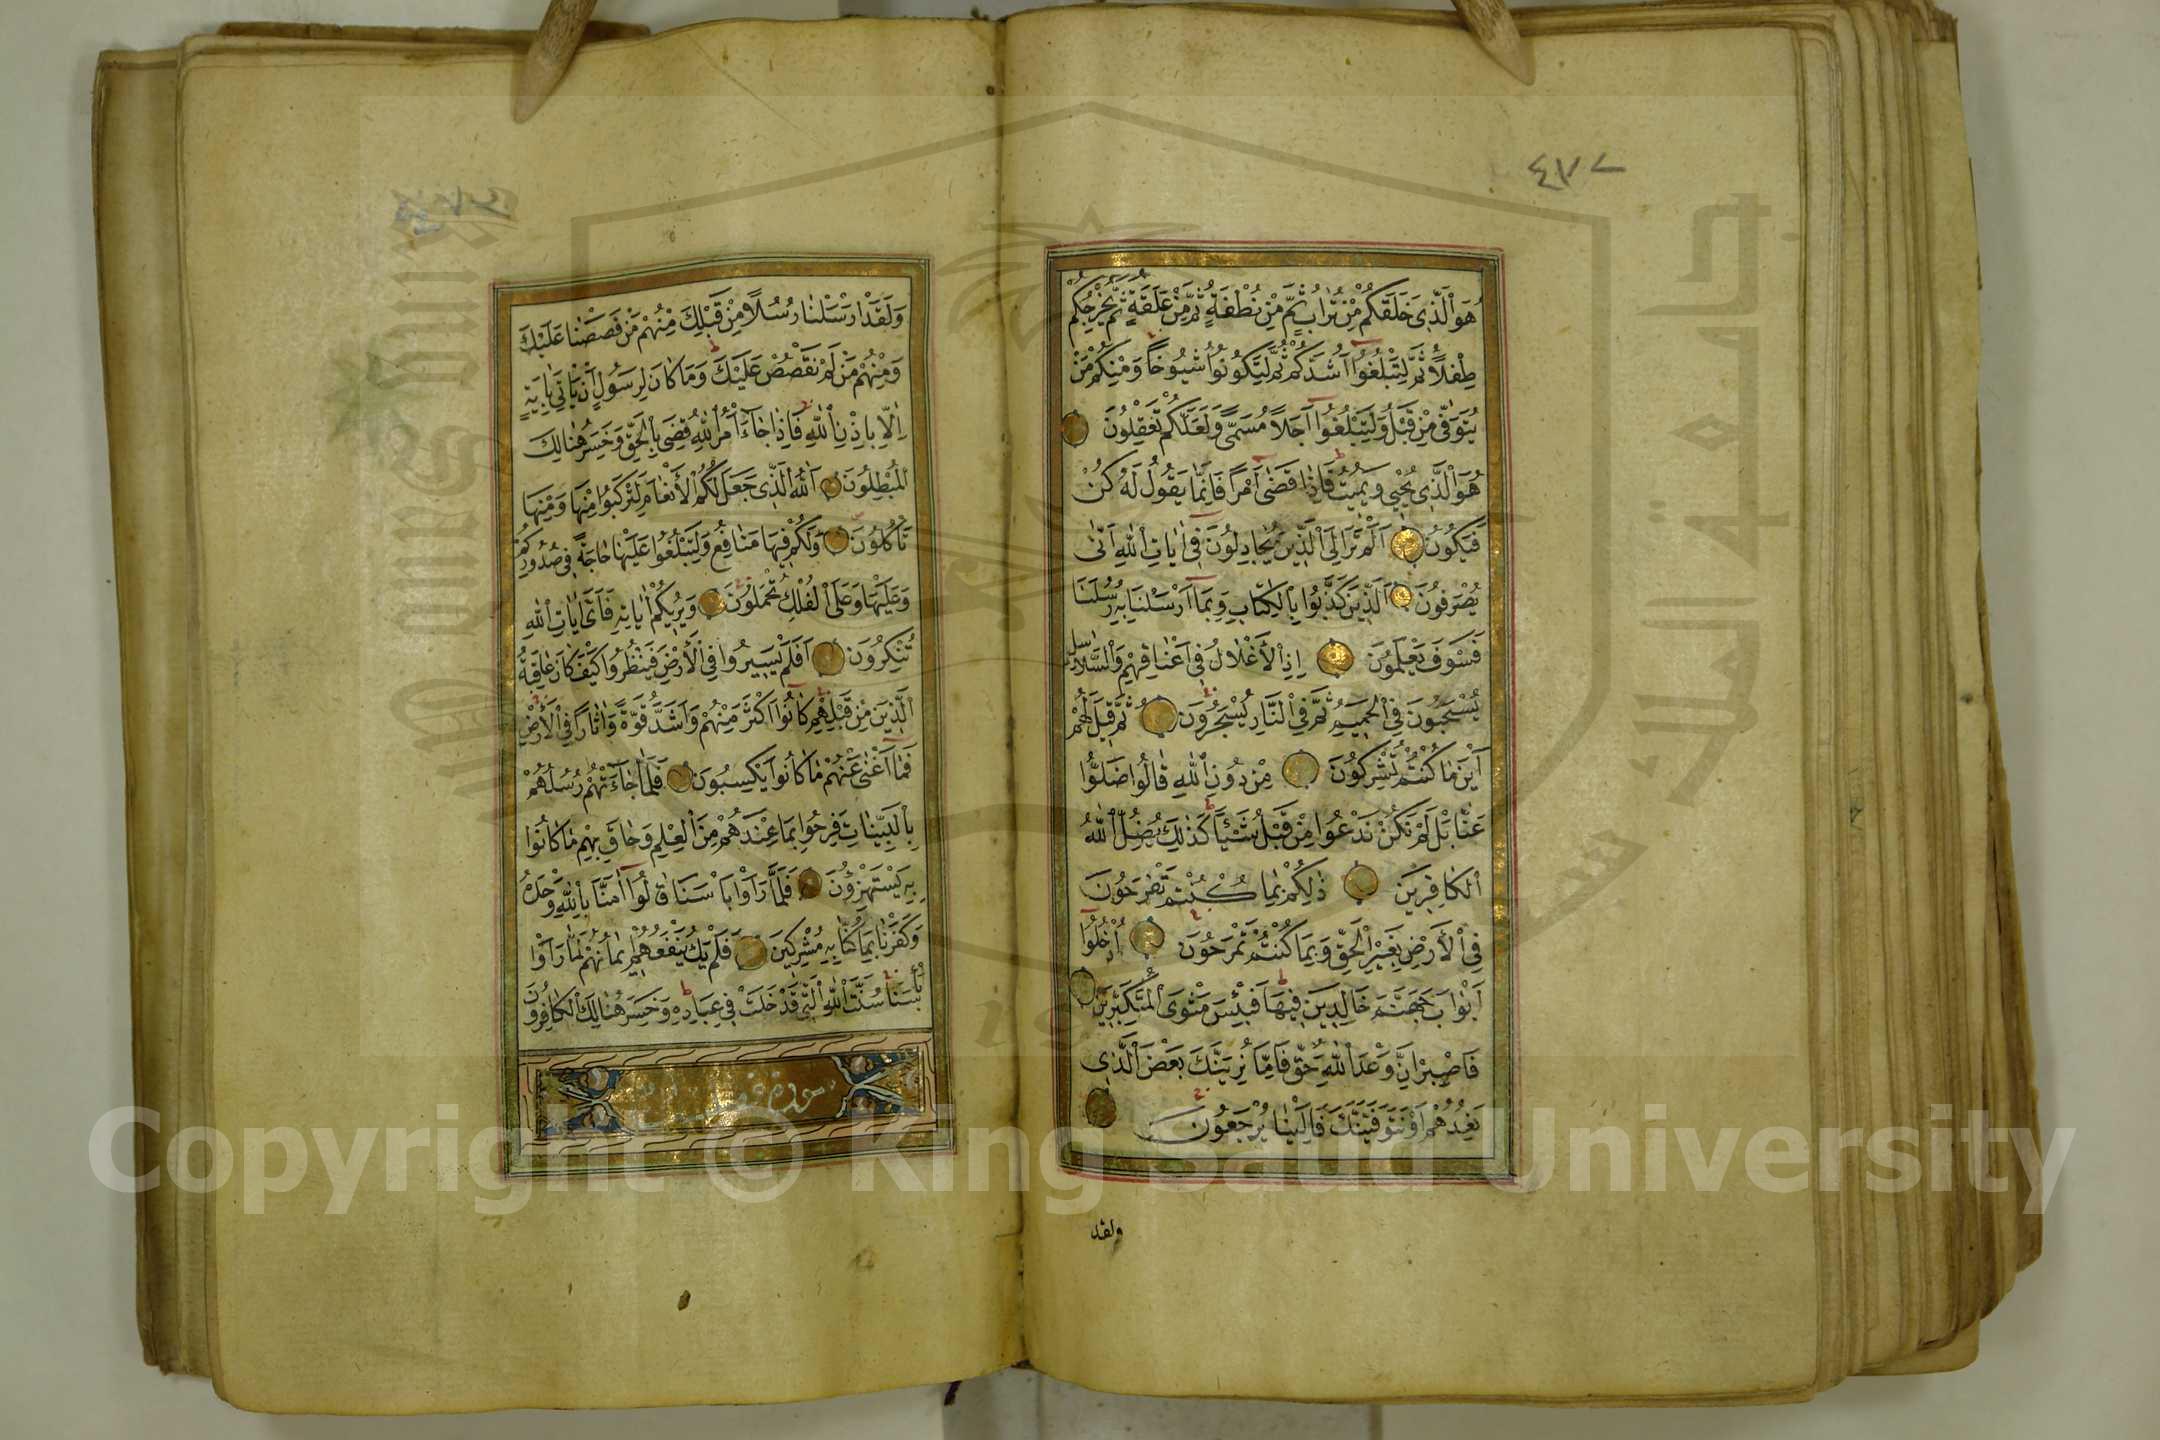 هُوَ الَّذِي خَلَقَكُمْ مِنْ تُرَابٍ ثُمَّ مِنْ نُطْفَةٍ ثُمَّ مِنْ عَلَقَةٍ ثُمَّ يُخْرِجُكُمْ
طِفْلًا ثُمَّ لِتَبْلُغُوا أَشُدَّكُمْ ثُمَّ لِتَكُونُوا شُيُوخًا وَمِنْكُمْ مَنْ
يُتَوَفَّى مِنْ قَبْلُ وَلِتَبْلُغُوا أَجَلًا مُسَمًّى وَلَعَلَّكُمْ تَعْقِلُونَ
هُوَ الَّذِي يُحْيِي وَيُمِيتُ فَإِذَا قَضَى أَمْرًا فَإِنَّمَا يَقُولُ لَهُ كُنْ
فَيَكُونُ أَلَمْ تَرَ إِلَى الَّذِينَ يُجَادِلُونَ فِي آيَاتِ اللَّهِ أَنَّى
يُصْرَفُونَ الَّذِينَ كَذَّبُوا بِالْكِتَابِ وَبِمَا أَرْسَلْنَا بِهِ رُسُلَنَا
فَسَوْفَ يَعْلَمُونَ إِذِ الْأَغْلَالُ فِي أَعْنَاقِهِمْ وَالسَّلَاسِلُ
يُسْحَبُونَ فِي الْحَمِيمِ ثُمَّ فِي النَّارِ يُسْجَرُونَ ثُمَّ قِيلَ لَهُمْ
أَيْنَ مَا كُنْتُمْ تُشْرِكُونَ مِنْ دُونِ اللَّهِ قَالُوا ضَلُّوا
عَنَّا بَلْ لَمْ نَكُنْ نَدْعُوا مِنْ قَبْلُ شَيْئًا كَذَلِكَ يُضِلُّ اللَّهُ
الْكَافِرِينَ ذَلِكُمْ بِمَا كُنْتُمْ تَفْرَحُونَ
فِي الْأَرْضِ بِغَيْرِ الْحَقِّ وَبِمَا كُنْتُمْ تَمْرَحُونَ ادْخُلُوا
أَبْوَابَ جَهَنَّمَ خَالِدِينَ فِيهَا فَبِئْسَ مَثْوَى الْمُتَكَبِّرِينَ
فَاصْبِرْ إِنَّ وَعْدَ اللَّهِ حَقٌّ فَإِمَّا نُرِيَنَّكَ بَعْضَ الَّذِي
نَعِدُهُمْ أَوْ نَتَوَفَّيَنَّكَ فَإِلَيْنَا يُرْجَعُونَ
ولقد
وَلَقَدْ أَرْسَلْنَا رُسُلًا مِنْ قَبْلِكَ مِنْهُمْ مَنْ قَصَصْنَا عَلَيْكَ
وَمِنْهُمْ مَنْ لَمْ نَقْصُصْ عَلَيْكَ وَمَا كَانَ لِرَسُولٍ أَنْ يَأْتِيَ بِآيَةٍ
إِلَّا بِإِذْنِ اللَّهِ فَإِذَا جَاءَ أَمْرُ اللَّهِ قُضِيَ بِالْحَقِّ وَخَسِرَ هُنَالِكَ
الْمُبْطِلُونَ اللَّهُ الَّذِي جَعَلَ لَكُمُ الْأَنْعَامَ لِتَرْكَبُوا مِنْهَا وَمِنْهَا
تَأْكُلُونَ وَلَكُمْ فِيهَا مَنَافِعُ وَلِتَبْلُغُوا عَلَيْهَا حَاجَةً فِي صُدُورِكُمْ
وَعَلَيْهَا وَعَلَى الْفُلْكِ تُحْمَلُونَ وَيُرِيكُمْ آيَاتِهِ فَأَيَّ آيَاتِ اللَّهِ
تُنْكِرُونَ أَفَلَمْ يَسِيرُوا فِي الْأَرْضِ فَيَنْظُرُوا كَيْفَ كَانَ عَاقِبَةُ
الَّذِينَ مِنْ قَبْلِهِمْ كَانُوا أَكْثَرَ مِنْهُمْ وَأَشَدَّ قُوَّةً وَآثَارًا فِي الْأَرْضِ
فَمَا أَغْنَى عَنْهُمْ مَا كَانُوا يَكْسِبُونَ فَلَمَّا جَاءَتْهُمْ رُسُلُهُمْ
بِالْبَيِّنَاتِ فَرِحُوا بِمَا عِنْدَهُمْ مِنَ الْعِلْمِ وَحَاقَ بِهِمْ مَا كَانُوا
بِهِ يَسْتَهْزِؤُنَ فَلَمَّا رَأَوْا بَأْسَنَا قَالُوا آمَنَّا بِاللَّهِ وَحْدَهُ
وَكَفَرْنَا بِمَا كُنَّا بِهِ مُشْرِكِينَ فَلَمْ يَكُ يَنْفَعُهُمْ إِيمَانُهُمْ لَمَّا رَأَوْا
بَأْسَنَا سُنَّتَ اللَّهِ الَّتِي قَدْ خَلَتْ فِي عِبَادِهِ وَخَسِرَ هُنَالِكَ الْكَافِرُونَ
سورة
Copyright © King Saud University